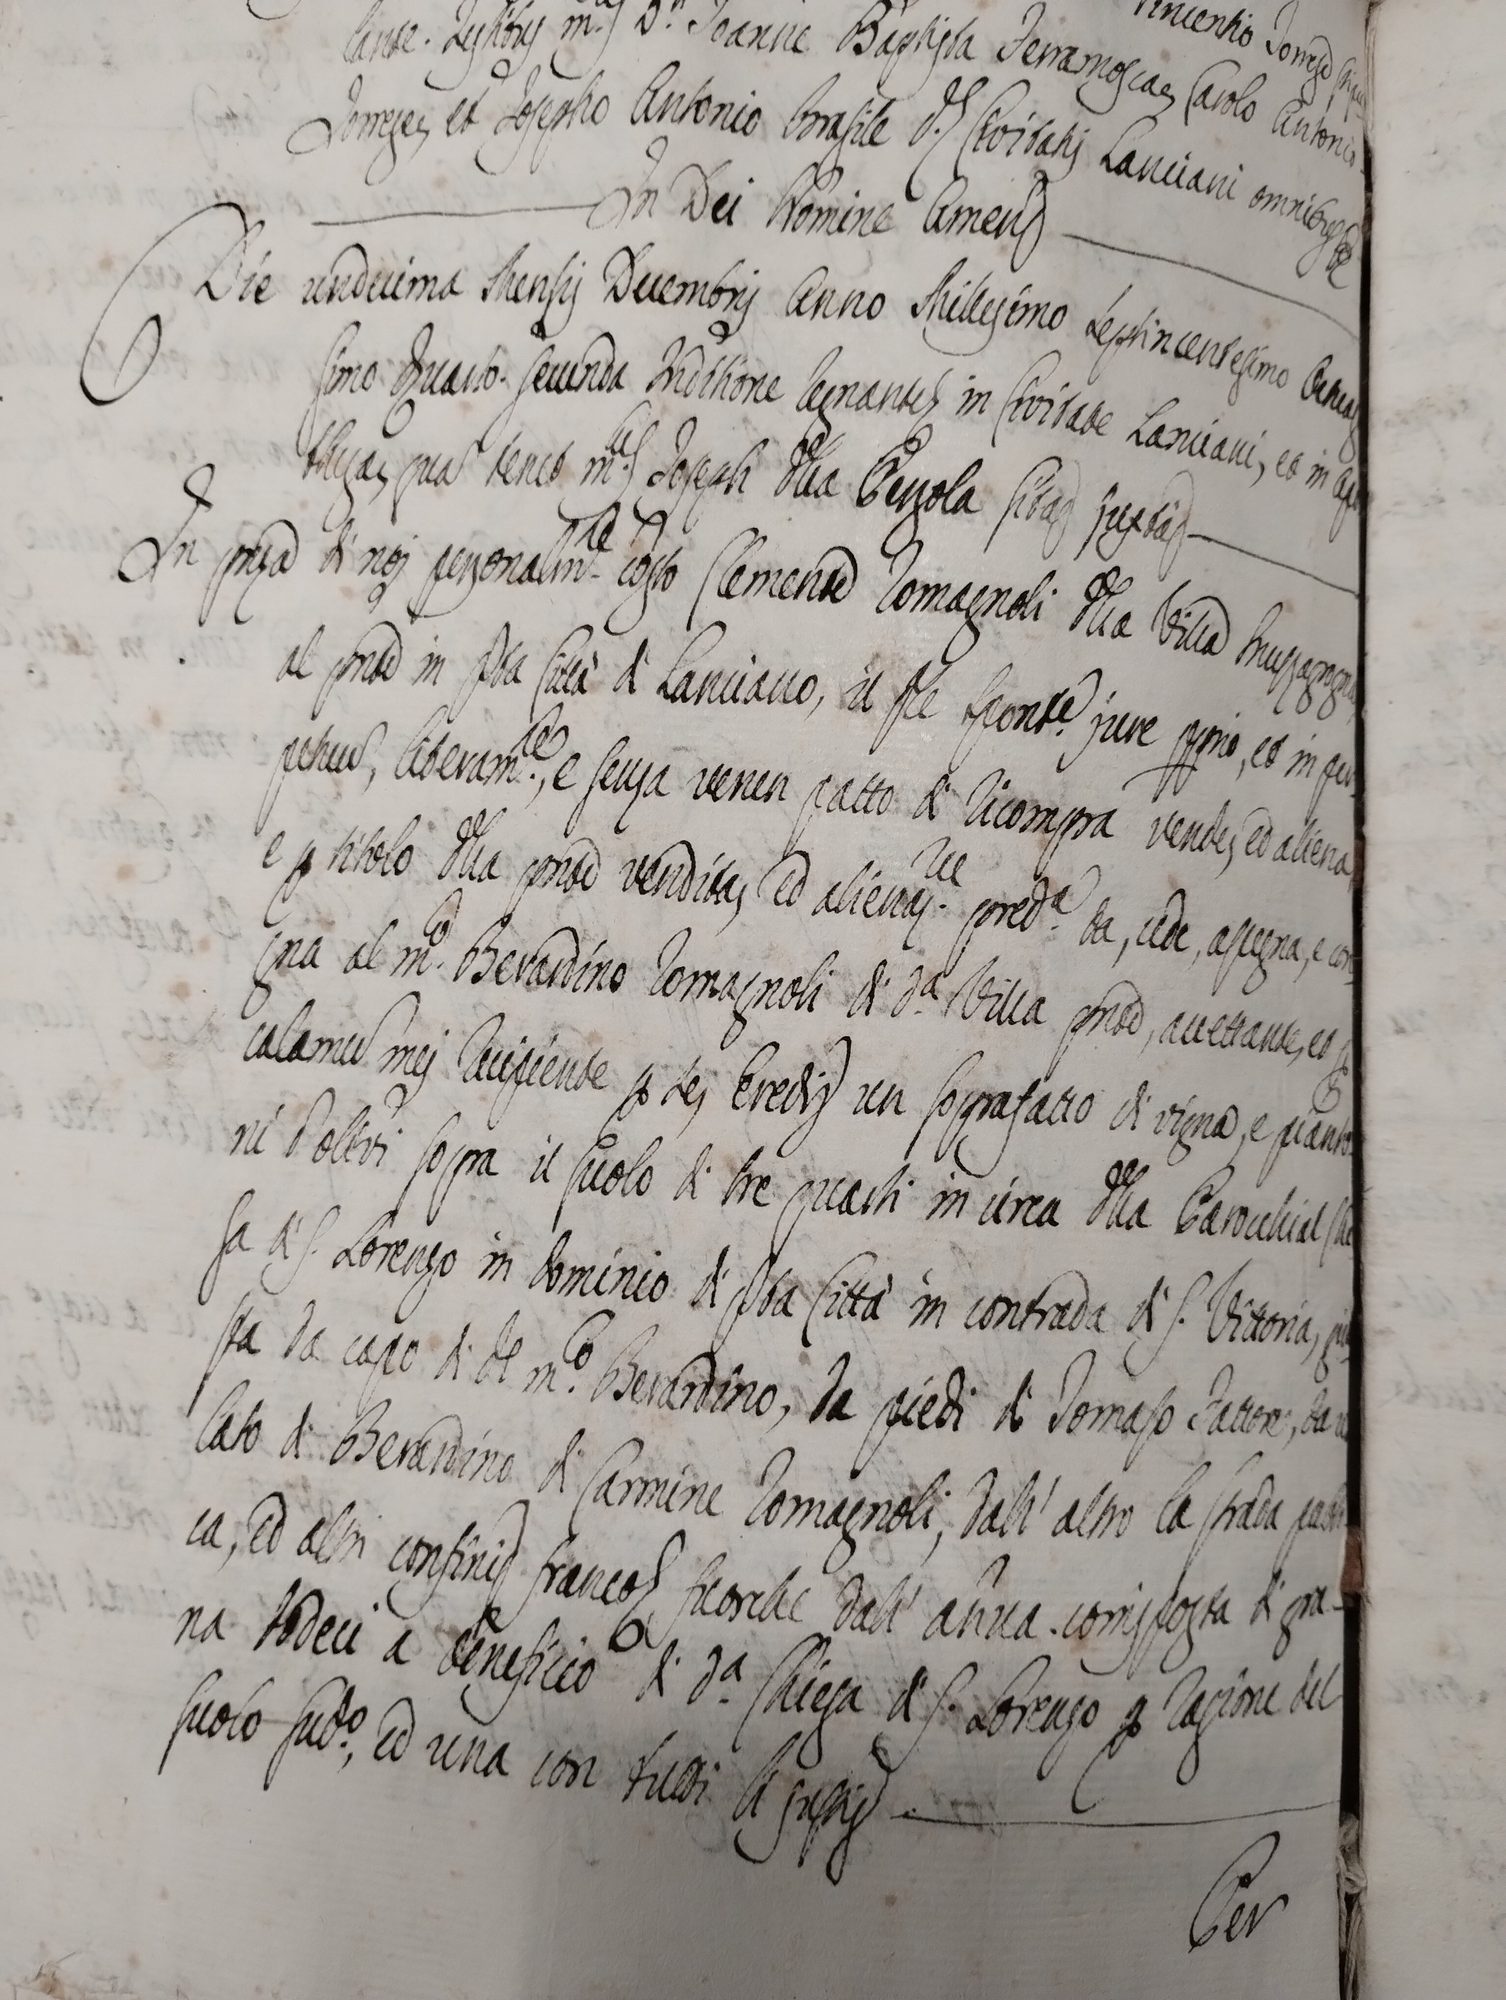 Vincentio Torrese,
lante. Testibus m.cis D.n Joanne Baptista Ferramosca, Carolo Antonio
Torrese, et Josepho Antonio Brasile d.s Civitatis Lanciani omnibus
In Dei Nomine Amen
Die undecima Mensis Decembris Anno Millesimo Septincentesimo
simo quarto. secunda Inditione regnante, in Civitate Lanciani, et in
theca, qua tenet m.cus Joseph dlla Penzola sita juxta
In pnza di noi personalm.te costo Clemente Romagnoli dlla Villa
al pnte in qta Città di Lanciano, il qle sponte. jure pprio, et in per-
petuu, liberam.te, e senza verun patto di ricompra vende, ed aliena,
e p titolo dlla pnte vendita, ed alienaz.ne pred.a da, cede, assegna, e con-
gna al m.o Berardino Romagnoli di d.a Villa pnte, accettante, et p
calamu mei recipiente p se, Eredi un soprafatto di vigna, e pianto-
ni d'olivi sopra il suolo di tre quarti in circa dlla Parocchial Chie
sa di S. Lorenzo in dominio di qta Città in contrada di S. Vittoria, giu
sta da capo di dl m.co Berardino, da piedi di Tomaso Fattore, da un
lato di Berardino di Carmine Romagnoli, dall' altro la strada publi
ca, ed altri confini franco, fuorche dall' annua. composta di gra-
na todeci a beneficio di d.a Chiesa di S. Lorenzo p ragione del
suolo sud.o, ed una con tutti li
Per